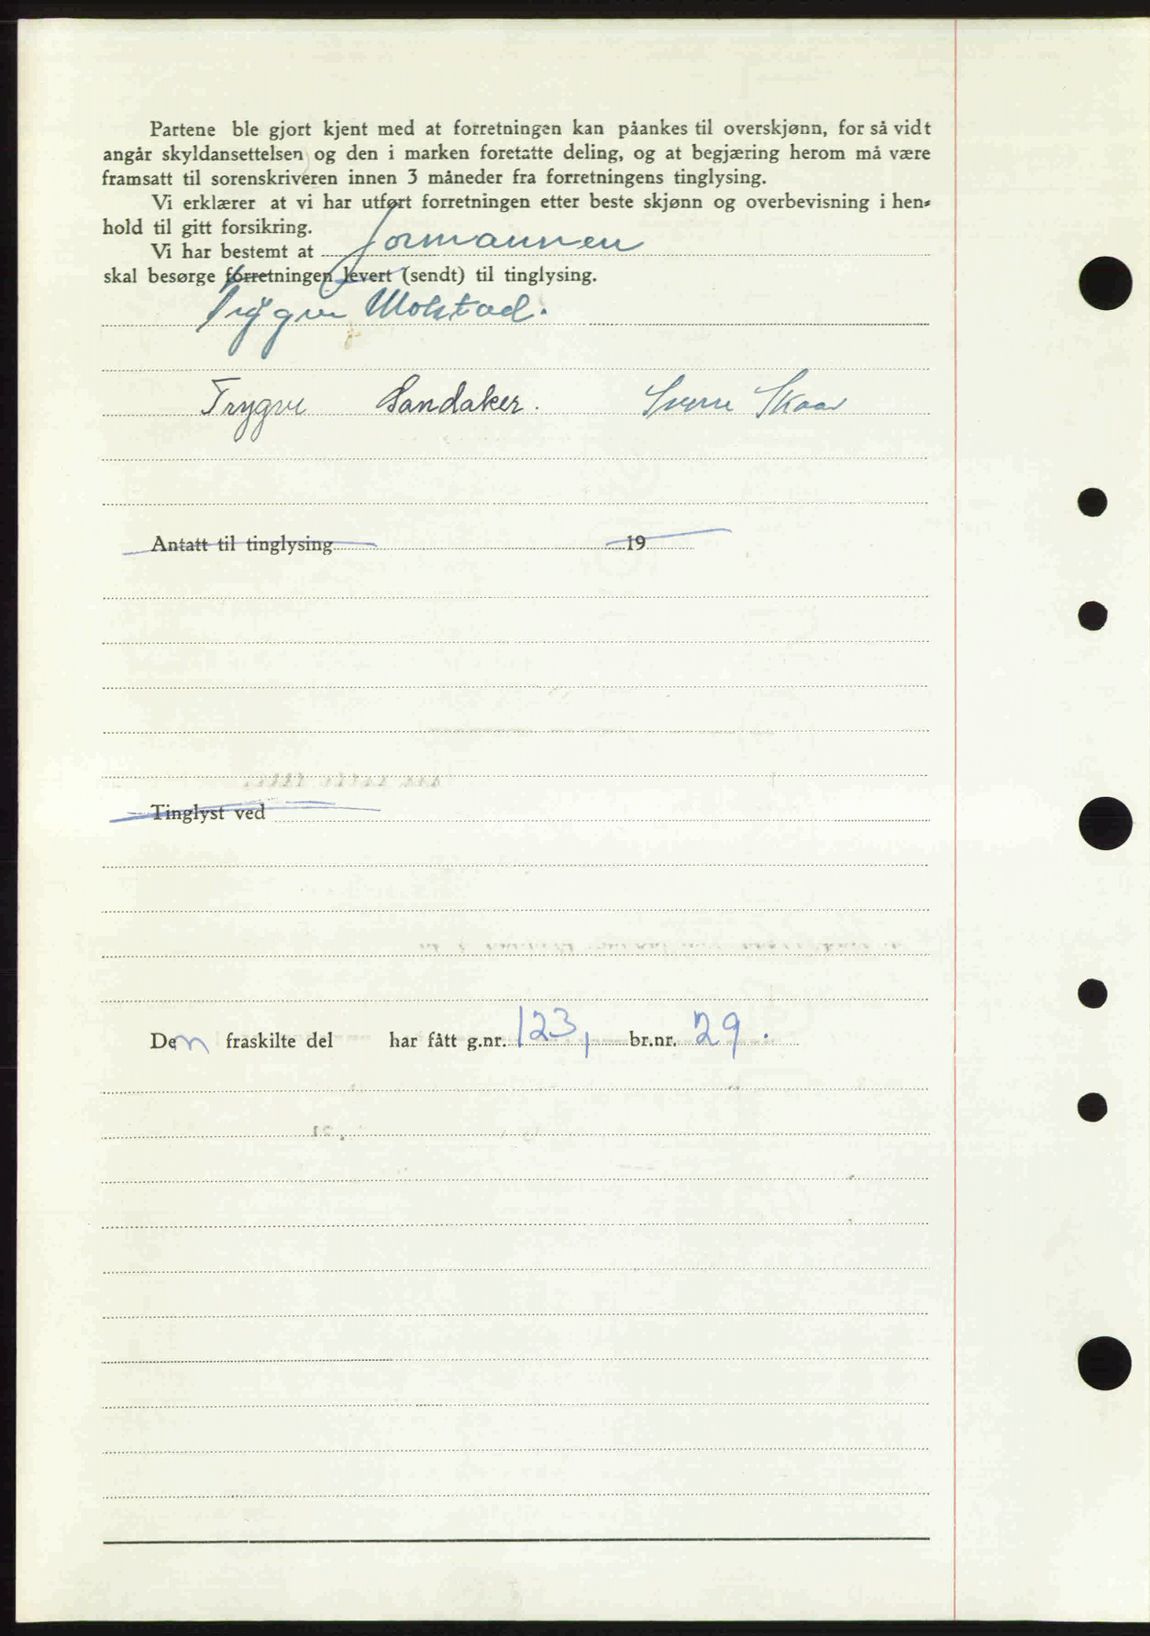 Partene ble gjort kjent med at forretningen kan påankes til overskjønn, for så vidt
angår skyldansettelsen og den i marken foretatte deling, og at begjæring herom må være
framsatt til sorenskriveren innen 3 måneder fra forretningens tinglysing.
Vi erklærer at vi har utført forretningen etter beste skjønn og overbevisning i hen-
hold til gitt forsikring.
Vi har bestemt at formannen
skal besørge forretningen levert (sendt) til tinglysing.
Trygve Molstad.
Trygve Sandaker. Sverre Skaar
Antatt til tinglysing 19
Tinglyst ved
Den fraskilte del har fått g.nr. 123, br.nr. 29.